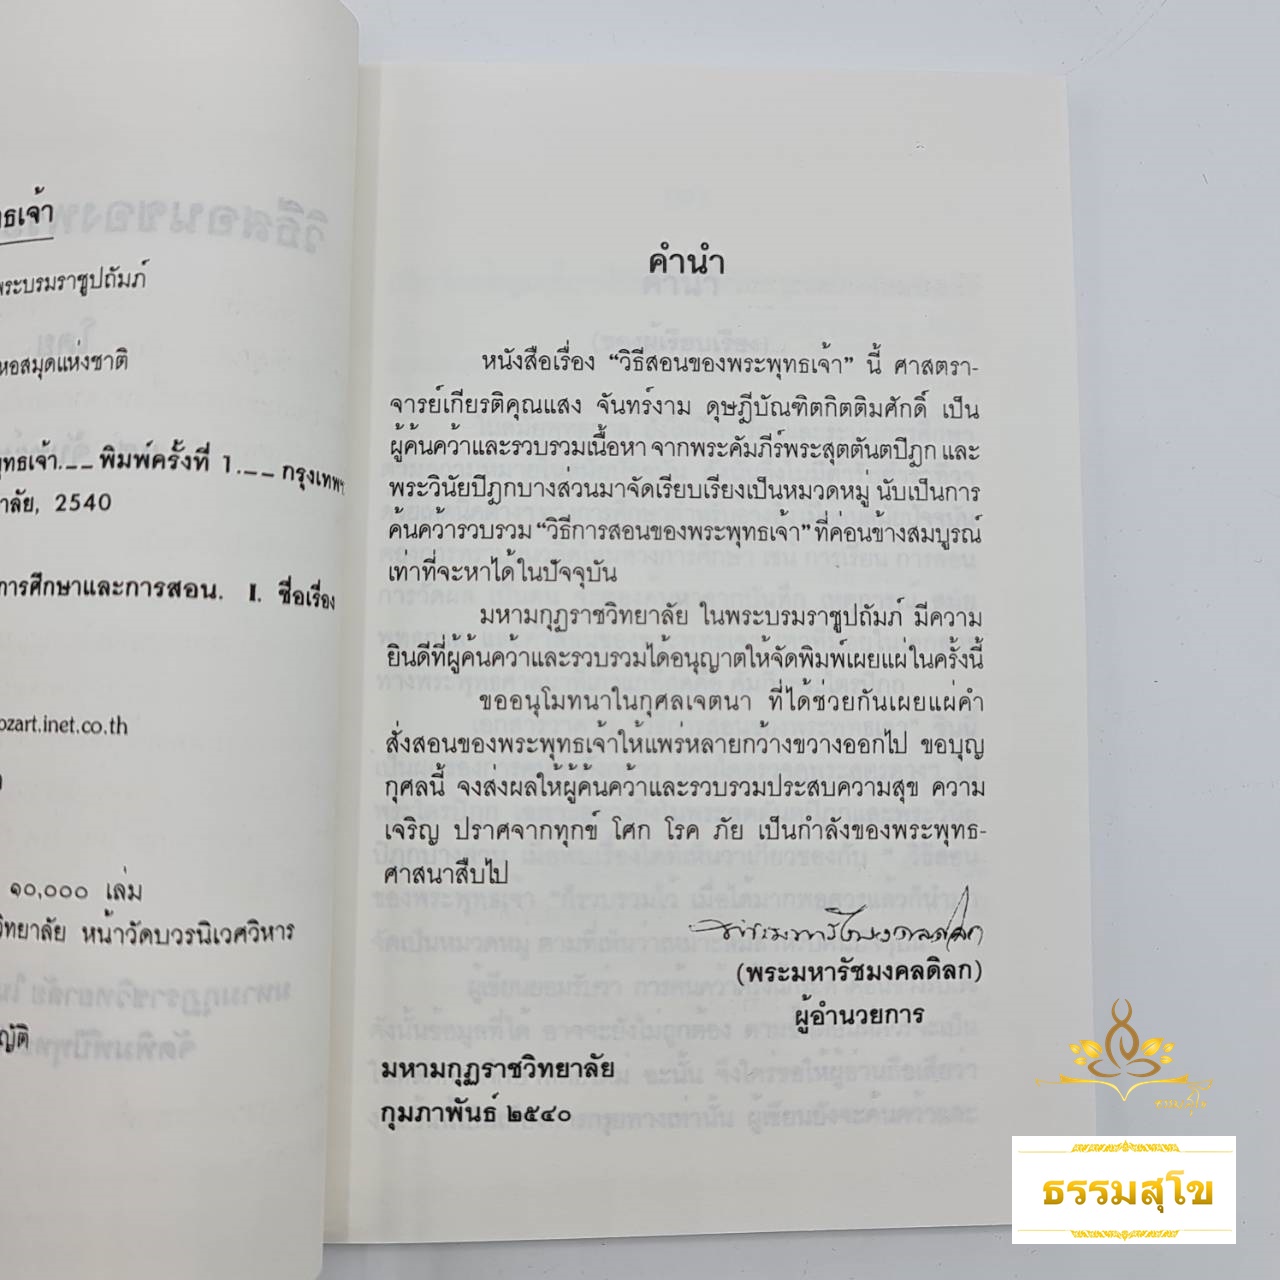 ทธเจ้า
พระบรมราชูปถัมภ์
หอสมุดแห่งชาติ
ทธเจ้า.__ พิมพ์ครั้งที่ 1.__ กรุงเทพฯ
าลัย, 2540
การศึกษาและการสอน. I. ชื่อเรื่อง
ozart.inet.co.th
๑๐,๐๐๐ เล่ม
วิทยาลัย หน้าวัดบวรนิเวศวิหาร
ญัติ
คำนำ
หนังสือเรื่อง “วิธีสอนของพระพุทธเจ้า” นี้ ศาสตรา-
จารย์เกียรติคุณแสง จันทร์งาม ดุษฎีบัณฑิตกิตติมศักดิ์ เป็น
ผู้ค้นคว้าและรวบรวมเนื้อหา จากพระคัมภีร์พระสุตตันตปิฎก และ
พระวินัยปิฎกบางส่วนมาจัดเรียบเรียงเป็นหมวดหมู่ นับเป็นการ
ค้นคว้ารวบรวม “วิธีการสอนของพระพุทธเจ้า” ที่ค่อนข้างสมบูรณ์
เท่าที่จะหาได้ในปัจจุบัน
มหามกุฏราชวิทยาลัย ในพระบรมราชูปถัมภ์ มีความ
ยินดีที่ผู้ค้นคว้าและรวบรวมได้อนุญาตให้จัดพิมพ์เผยแผ่ในครั้งนี้
ขออนุโมทนาในกุศลเจตนา ที่ได้ช่วยกันเผยแผ่คำ
สั่งสอนของพระพุทธเจ้าให้แพร่หลายกว้างขวางออกไป ขอบุญ
กุศลนี้ จงส่งผลให้ผู้ค้นคว้าและรวบรวมประสบความสุข ความ
เจริญ ปราศจากทุกข์ โศก โรค ภัย เป็นกำลังของพระพุทธ-
ศาสนาสืบไป
(พระมหารัชมงคลดิลก)
ผู้อำนวยการ
มหามกุฏราชวิทยาลัย
กุมภาพันธ์ ๒๕๔๐
ธรรมสุโข